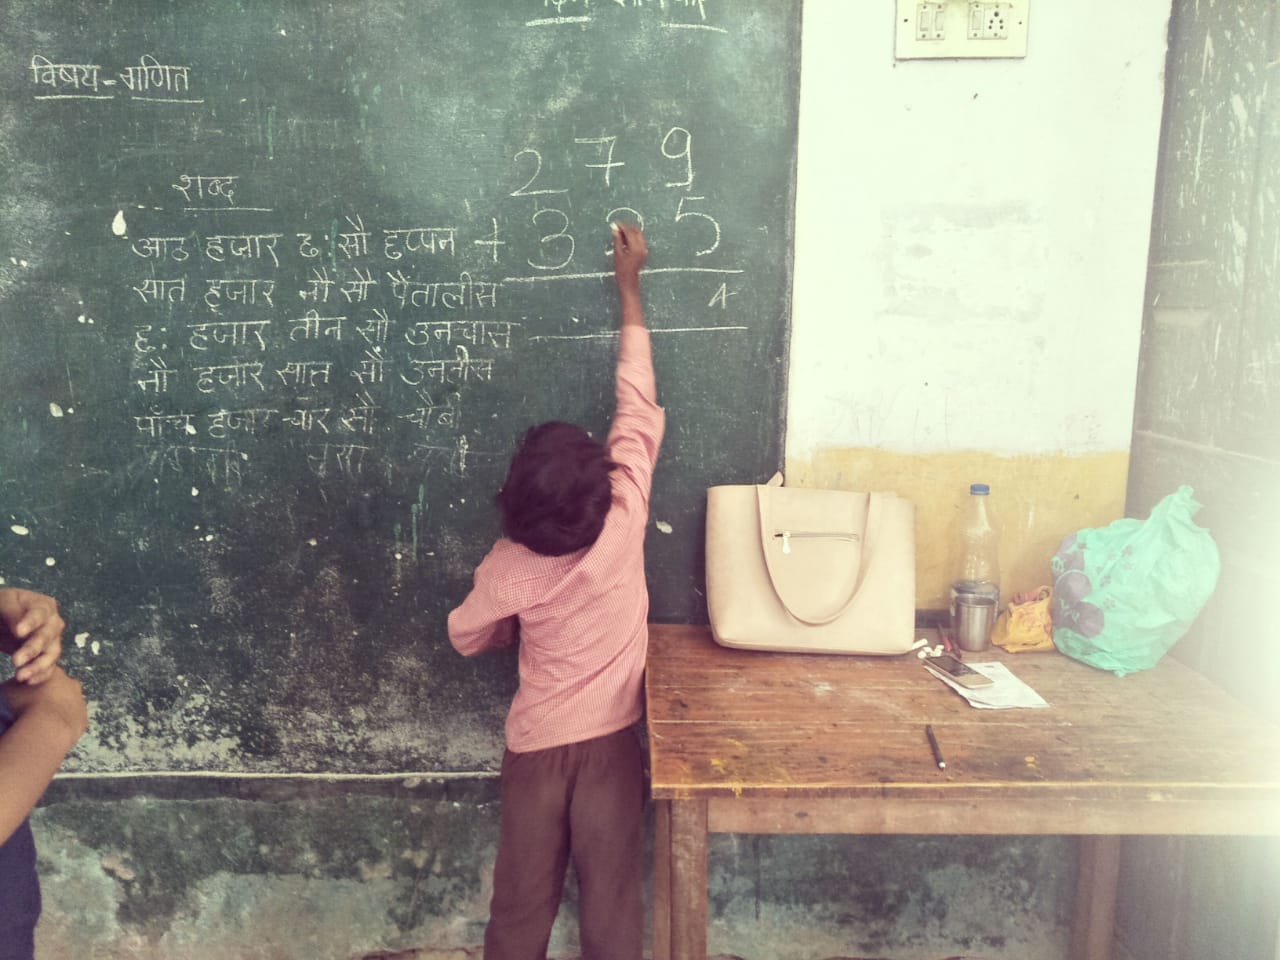 विषय - गणित
शब्द
आठ हजार छ: सौ छप्पन
सात हजार नौ सौ पैंतालीस
छ: हजार तीन सौ उनचास
नौ हजार सात सौ उनतीस
पाँच हजार चार सौ चौबी
2 7 9
+ 3 5
4